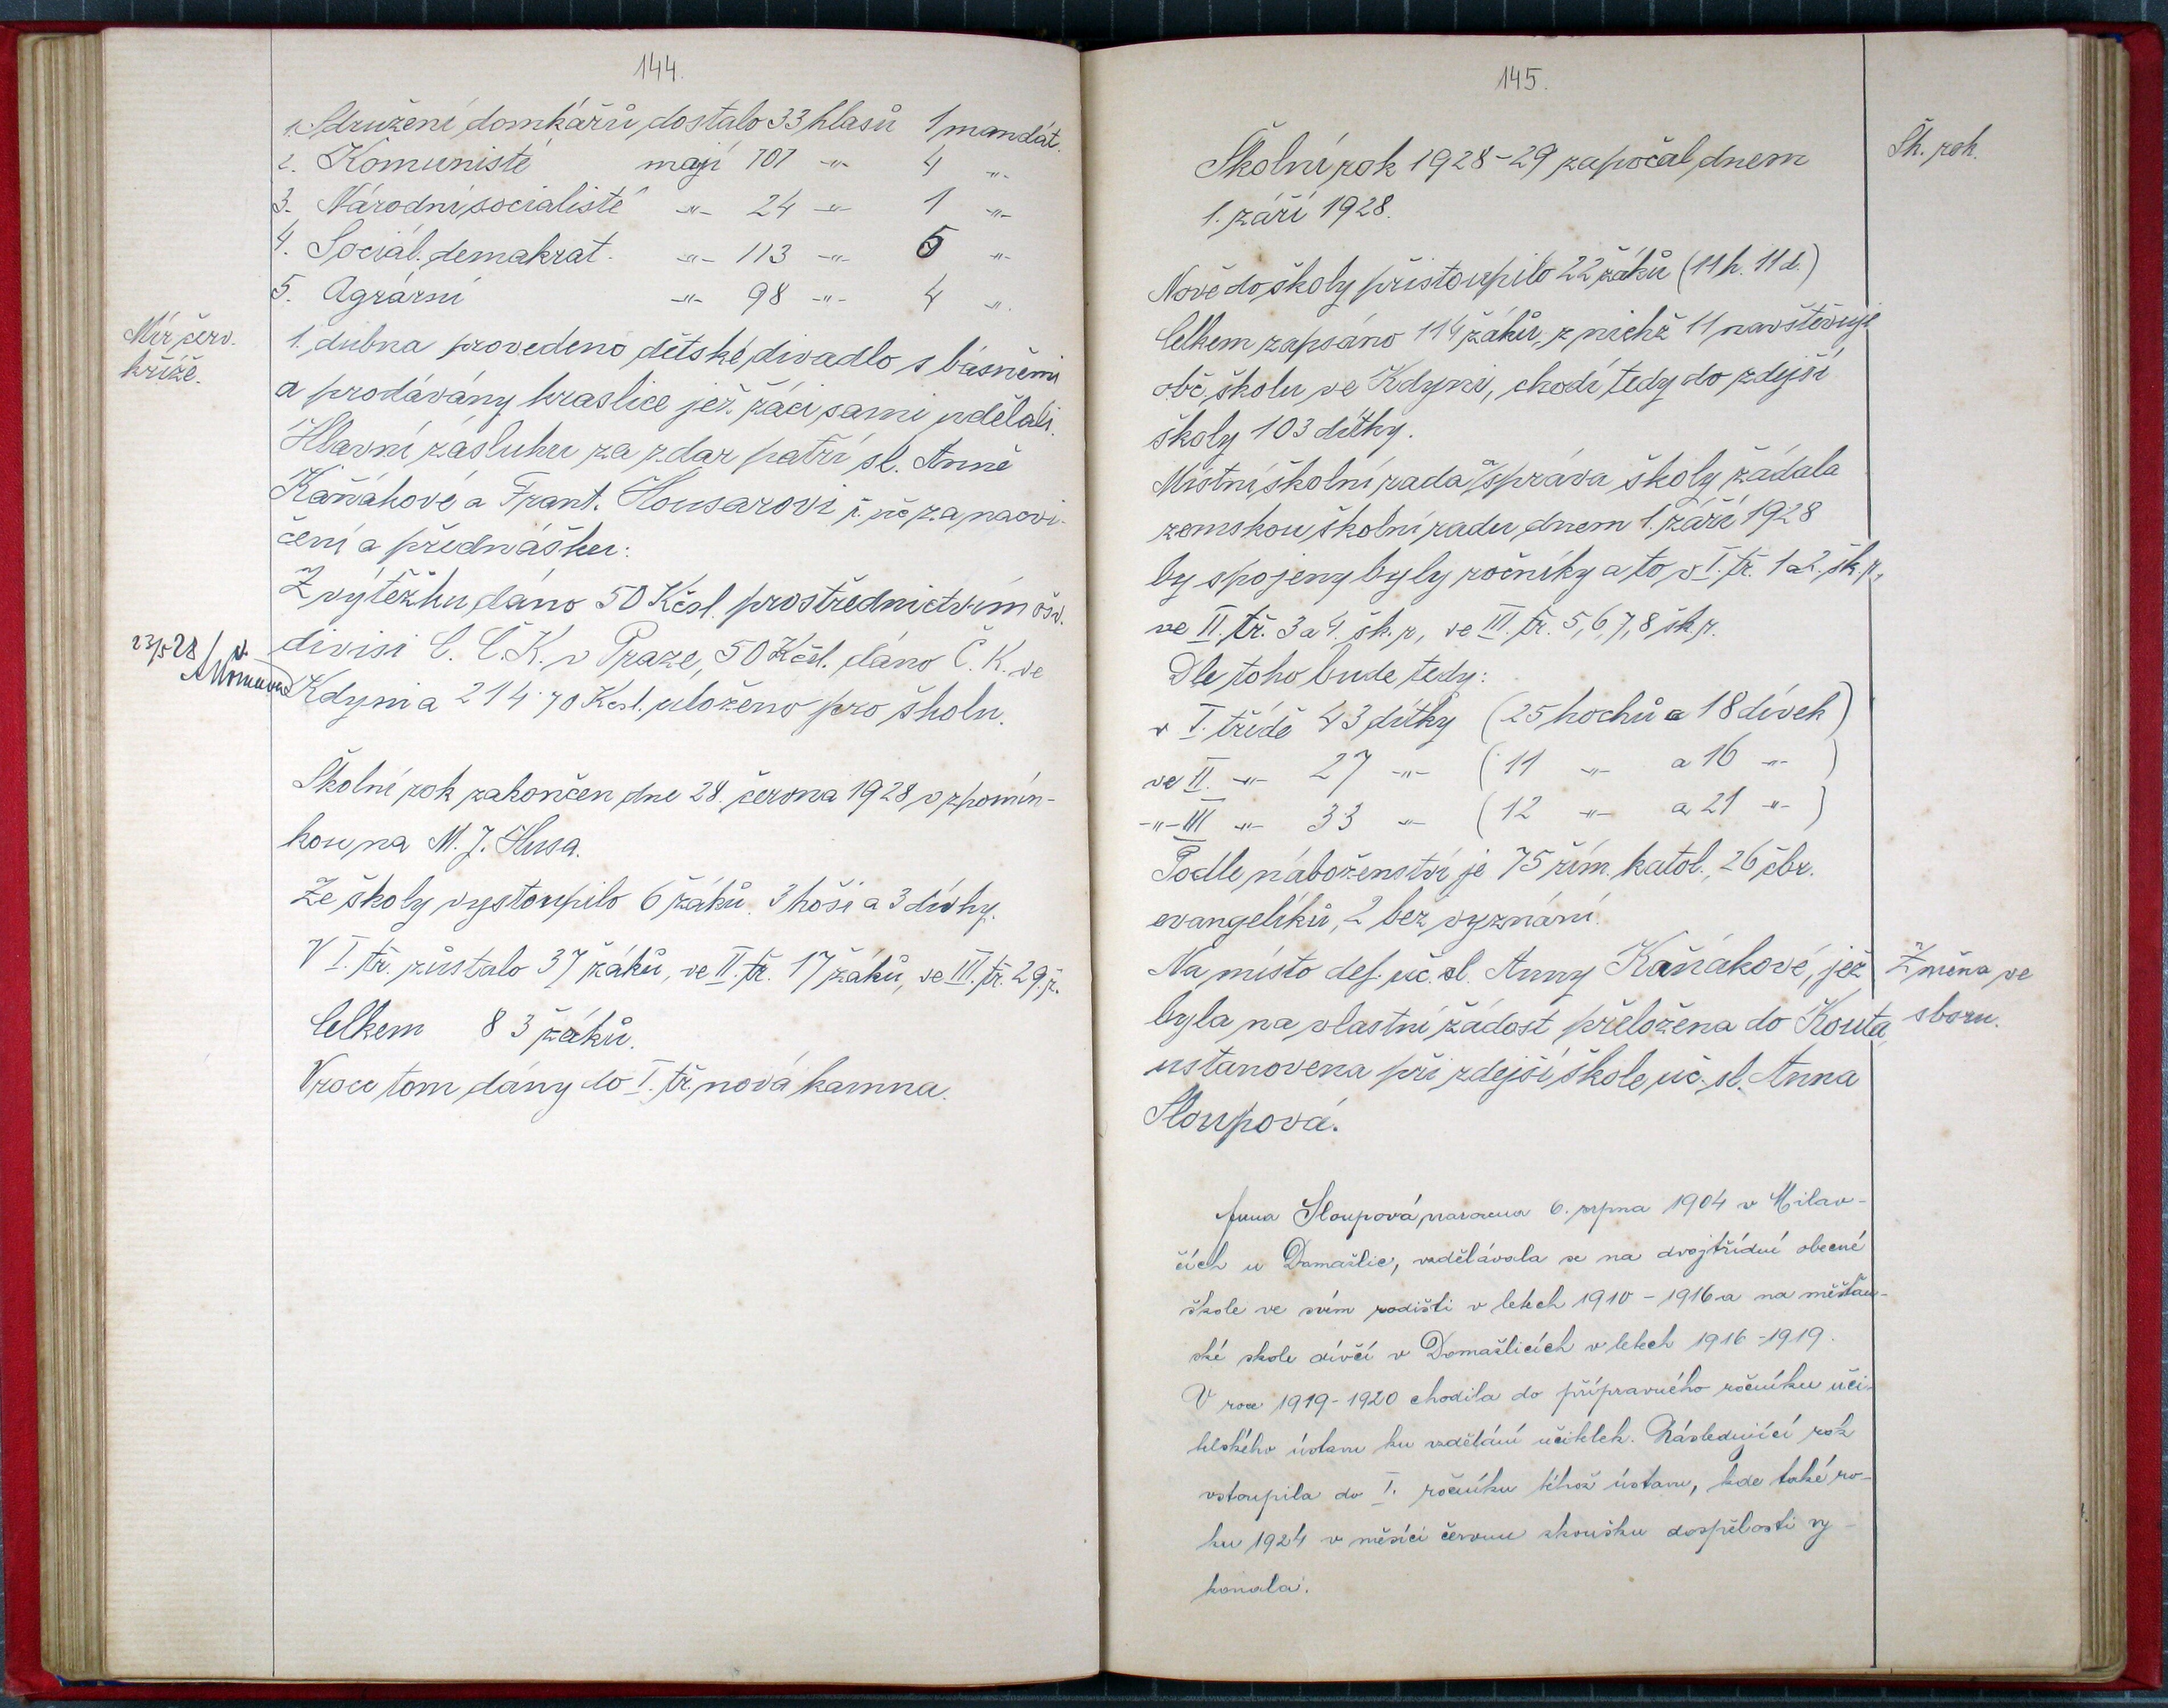 144.
1. Sdružení domkářů dostalo 33 hlasů 1 mandát.
2. Komunisté mají 101 -"- 4 -"-
3. Národní socialisté -"- 24 -"- 1 -"-
4. Sociál. demokrat. -"- 113 -"- 5 -"-
5. Agrární -"- 98 -"- 4 -"-
Mír červ.
kříže.
1. dubna provedeno dětské divadlo s básněmi
a prodávány kraslice jež žáci sami udělali.
Hlavní zásluhu za zdar patří sl. Anně
Kaňákové a Frant. Housarovi ř. uč za nacvi-
čení a přednášku:
Z výtěžku dáno 50 Kčsl. prostřednictvím ošv.
divisi Č. Č. K. v Praze, 50 Kčsl. dáno Č. K. ve
23/5 28
Kdyni a 214·70 Kčsl. uloženo pro školu.
Školní rok zakončen dne 28. června 1928 vzpomín-
kou na M. J. Husa.
Ze školy vystoupilo 6 žáků. 3 hoši a 3 dívky.
V I. tř. zůstalo 37 žáků, ve II. tř. 17 žáků, ve III. tř. 29 ž.
Celkem 83 žáků.
V roce tom dány do I. tř. nová kamna.
145.
Šk. rok.
Školní rok 1928-29 započal dnem
1. září 1928.
Nově do školy přistoupilo 22 žáků (11 h. 11 d.)
Celkem zapsáno 114 žáků, z nichž 11 navštěvuje
obč. školu ve Kdyni, chodí tedy do zdejší
školy 103 dítky.
Místní školní rada a správa školy žádala
zemskou školní radu dnem 1. září 1928
by spojeny byly ročníky a to v I. tř. 1 a 2. šk. r.,
ve II. tř. 3 a 4. šk. r., ve III. tř. 5, 6, 7, 8 šk. r.
Dle toho bude tedy:
v I. třídě 43 dítky (25 hochů a 18 dívek)
ve II. -"- 27 -"- (11 -"- a 16 -"-)
-"- III -"- 33 -"- (12 -"- a 21 -"-)
Podle náboženství je 75 řím. katol., 26 čbr.
evangelíků, 2 bez vyznání.
Na místo def. uč. sl. Anny Kaňákové, jež
Změna ve
byla na vlastní žádost přeložena do Kouta,
sboru.
ustanovena při zdejší škole uč. sl. Anna
Sloupová.
Anna Sloupová narozena 6. srpna 1904 v Milav-
čích u Domažlic, vzdělávala se na dvojtřídní obecné
škole ve svém rodišti v letech 1910-1916 a na měšťan-
ské škole dívčí v Domažlicích v letech 1916-1919.
V roce 1919-1920 chodila do přípravného ročníku uči-
telského ústavu ku vzdělání učitelek. Následující rok
vstoupila do I. ročníku téhož ústavu, kde také ro-
ku 1924 v měsíci červnu zkoušku dospělosti vy-
konala.